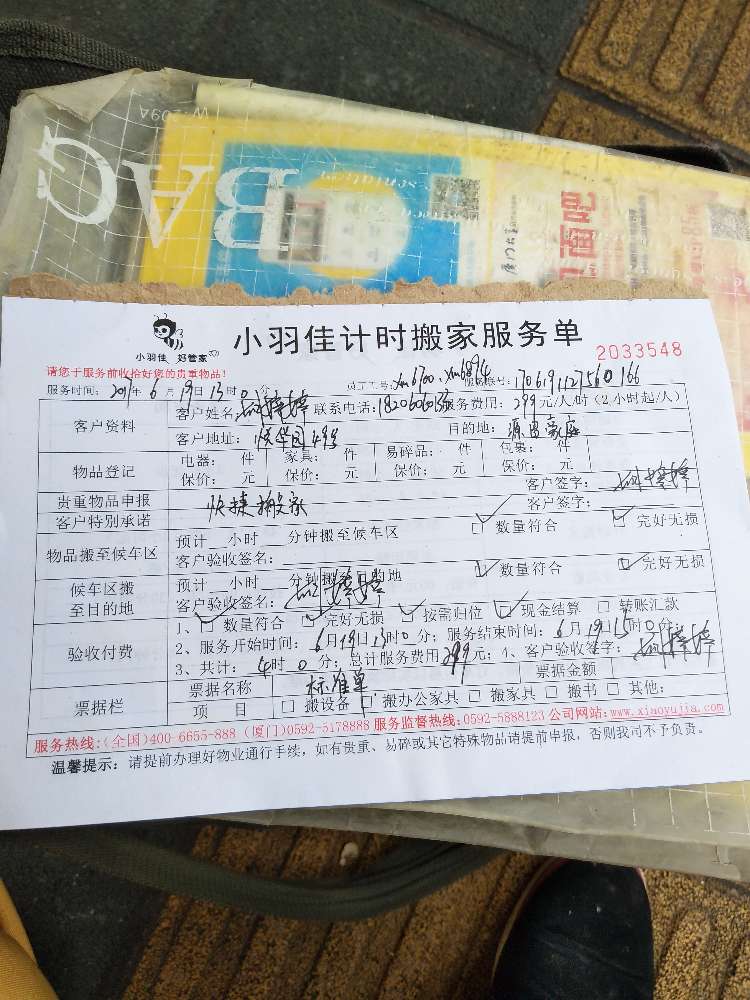 W:209A
BAG
小羽佳 好管家
小羽佳计时搬家服务单
2033548
请您于服务前收拾好您的贵重物品!
服务时间: 2017年6月19日13时0分 员工工号: xm6700、xm6894 服务账号: 1706191127560166
客户资料 客户姓名: 婷婷 联系电话: 服务费用: 299元/人/时(2小时起/人)
客户地址: 目的地:
物品登记 电器: 件 家具: 件 易碎品: 件 包裹: 件
保价: 元 保价: 元 保价: 元 保价: 元
贵重物品申报 客户签字: 婷婷
客户特别承诺 快捷搬家 客户签字:
物品搬至候车区 预计 小时 分钟搬至候车区 数量符合 完好无损
客户验收签名:
候车区搬至目的地 预计 小时 分钟搬至目的地 数量符合 完好无损
客户验收签名: 婷婷
验收付费 1、 数量符合 完好无损 按需归位 现金结算 转账汇款
2、服务开始时间: 6月19日13时0分; 服务结束时间: 6月19日15时0分;
3、共计: 4时0分; 总计服务费用299元; 4、客户验收签字: 婷婷
票据栏 票据名称 标准单 票据金额
项 目 搬设备 搬办公家具 搬家具 搬书 其他:
服务热线:(全国)400-6655-888 (厦门)0592-5178888 服务监督热线:0592-5888123 公司网站:www.xiaoyujia.com
温馨提示: 请提前办理好物业通行手续,如有贵重、易碎或其它特殊物品请提前申报,否则我司不予负责。